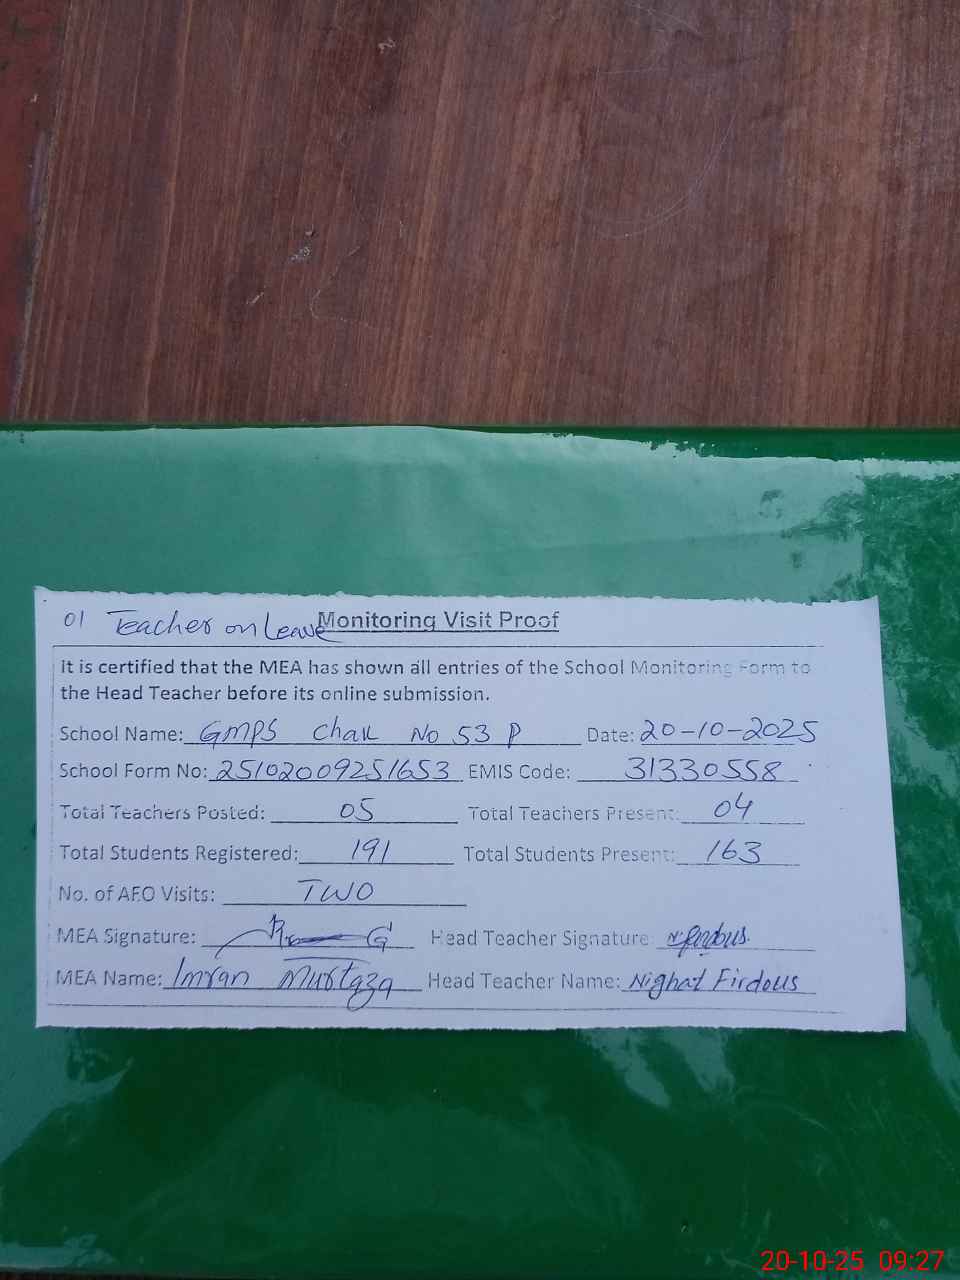 01 Teacher on Leave Monitoring Visit Proof
It is certified that the MEA has shown all entries of the School Monitoring Form to
the Head Teacher before its online submission.
School Name: GMPS Chak No 53 P Date: 20-10-2025
School Form No: 25102009251653 EMIS Code: 31330558
Total Teachers Posted: 05 Total Teachers Present: 04
Total Students Registered: 191 Total Students Present: 163
No. of AEO Visits: TWO
MEA Signature: Head Teacher Signature: N.firdous.
MEA Name: Imran Murtaza Head Teacher Name: Nighat Firdous
20-10-25 09:27